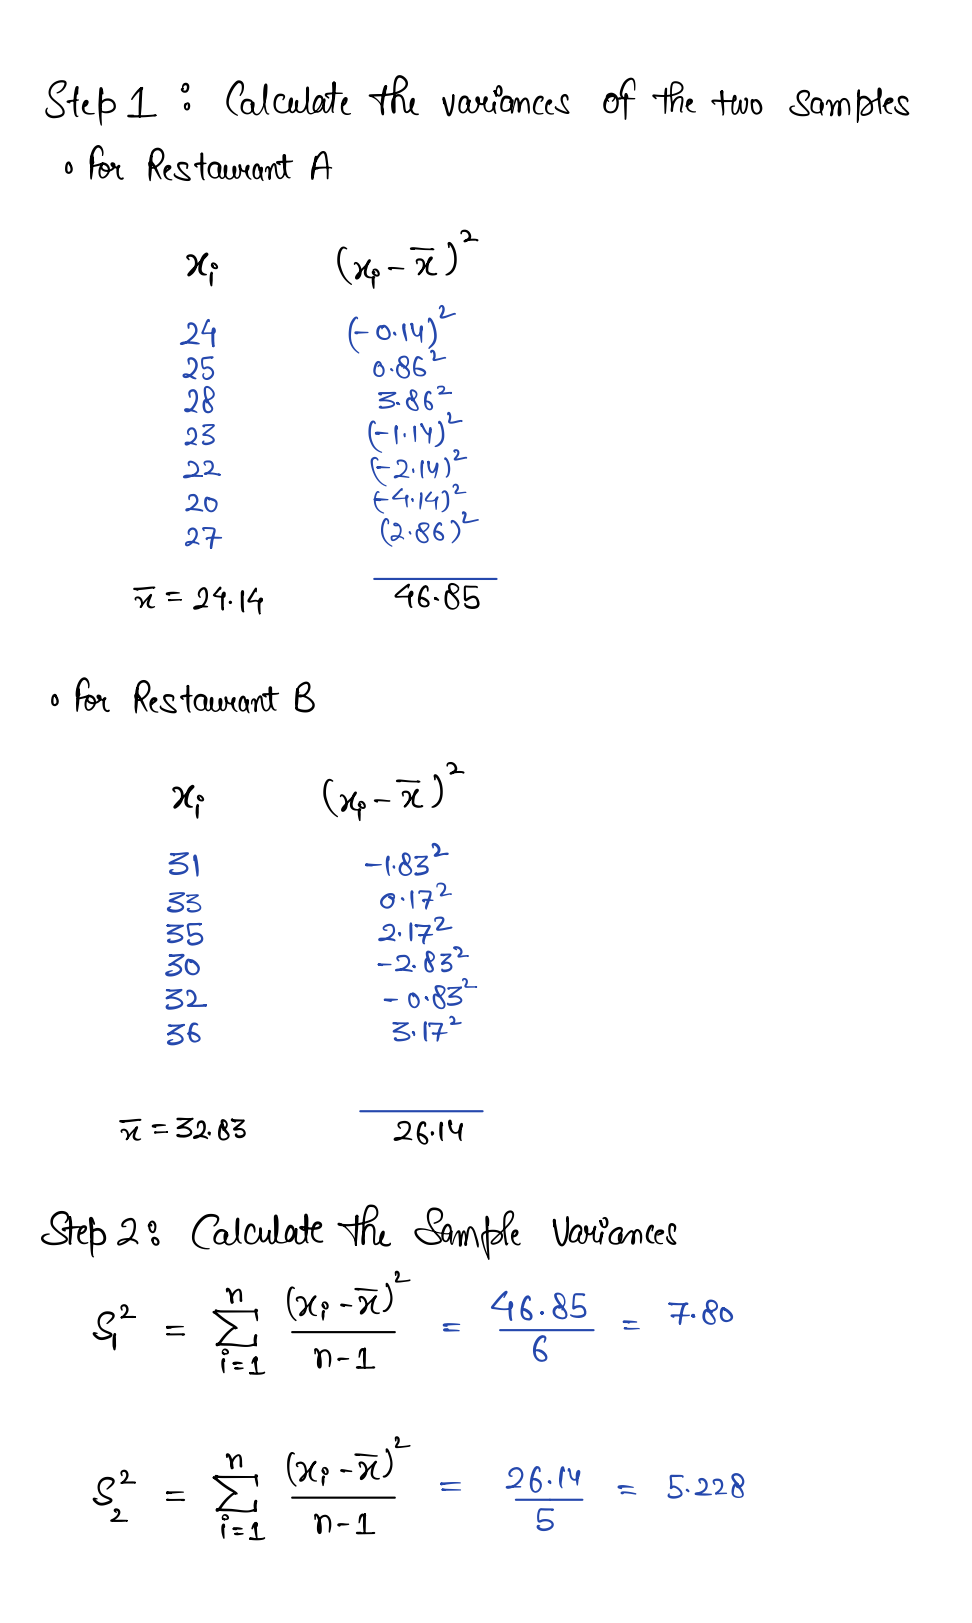 Step 1 : Calculate the variances of the two Samples
∘ for Restaurant A
xᵢ (xᵢ - x̄)²
24 (-0.14)²
25 0.86²
28 3.86²
23 (-1.14)²
22 (-2.14)²
20 (-4.14)²
27 (2.86)²
x̄ = 24.14 46.85
∘ for Restaurant B
xᵢ (xᵢ - x̄)²
31 -1.83²
33 0.17²
35 2.17²
30 -2.83²
32 -0.83²
36 3.17²
x̄ = 32.83 26.14
Step 2: Calculate the Sample Variances
S₁² = ∑ᵢ₌₁ⁿ (xᵢ - x̄)² / n-1 = 46.85 / 6 = 7.80
S₂² = ∑ᵢ₌₁ⁿ (xᵢ - x̄)² / n-1 = 26.14 / 5 = 5.228